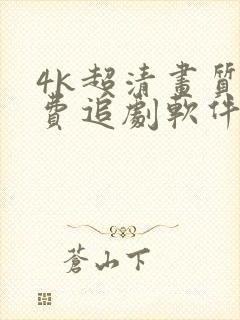 4k超清畫質
費追劇軟件
蒼山下